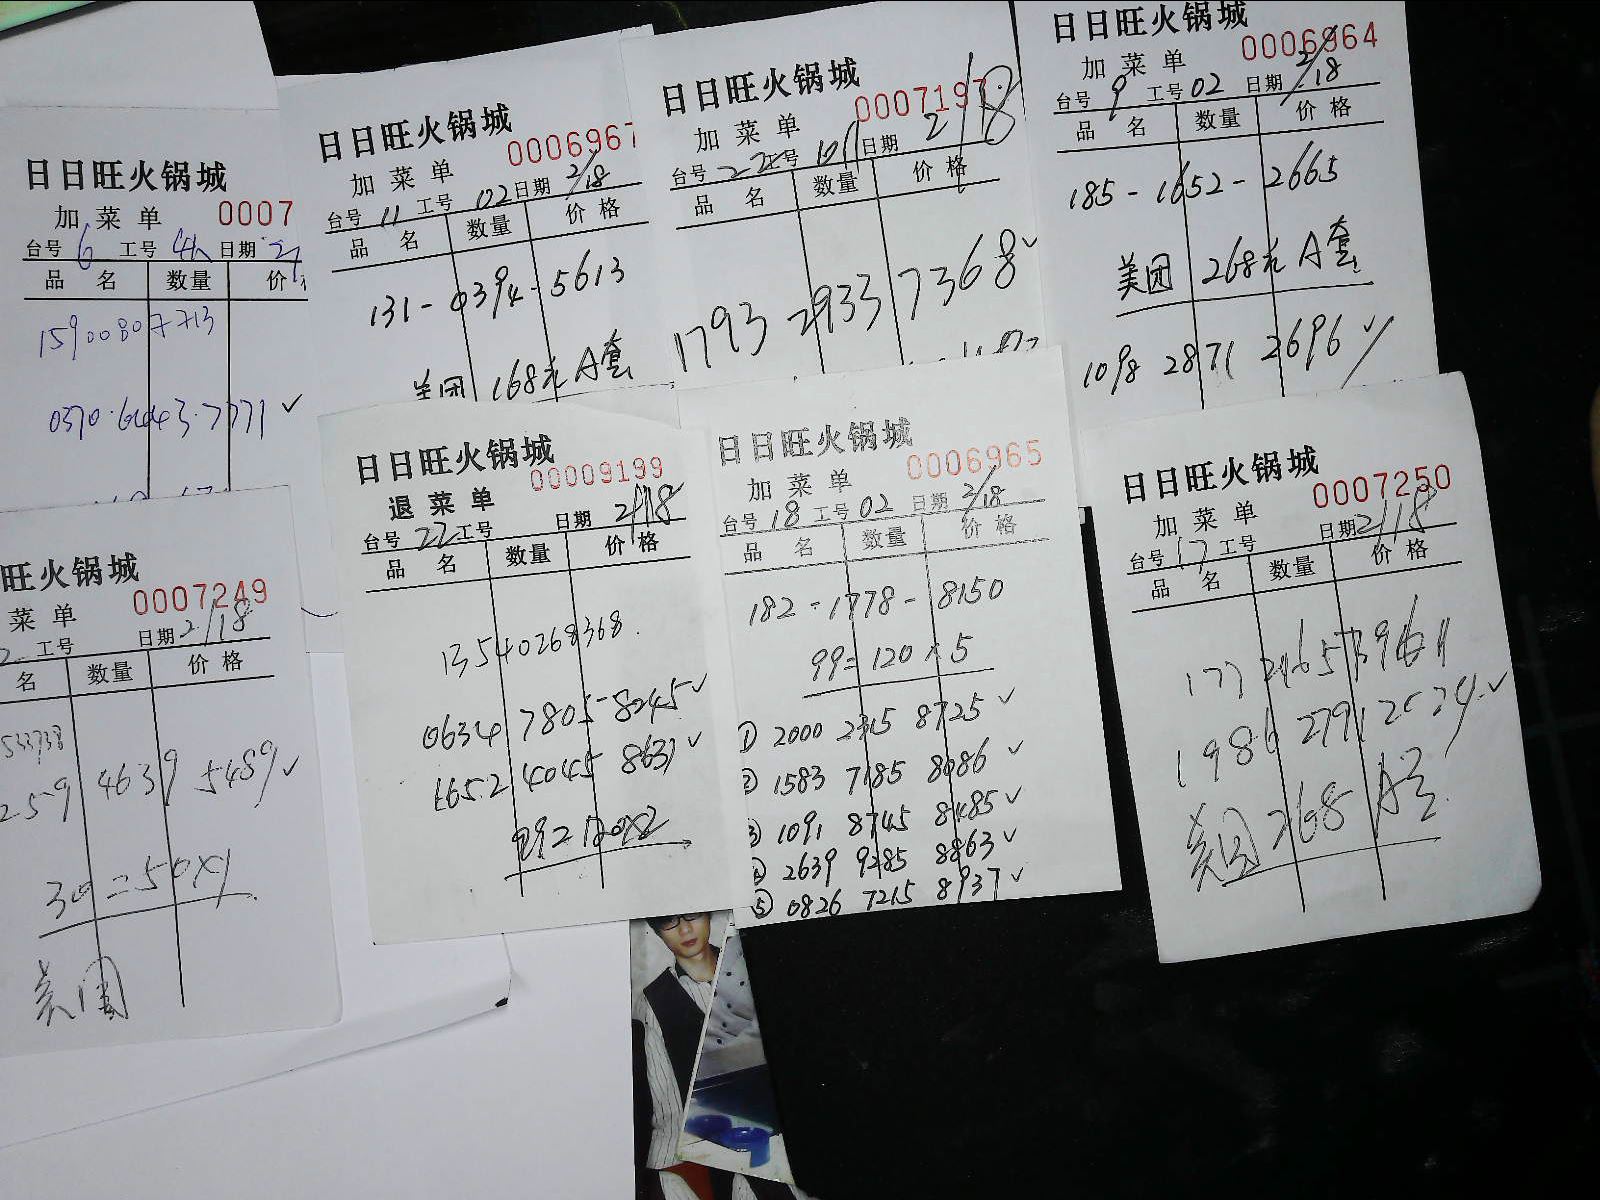 日日旺火锅城
加菜单 0007
台号 6 工号 日期
品名 数量 价
15900807713
0370·6443·7771 ✓
日日旺火锅城
0006967
加菜单
台号 11 工号 02 日期 2/18
品名 数量 价格
131-0394-5613
美团 168元A套
日日旺火锅城
加菜单
台号 22 工号 日期 2/18
品名 数量 价格
1793 2933 7368 ✓
日日旺火锅城
0006964
加菜单
台号 9 工号 02 日期 2/18
品名 数量 价格
185-1652-2665
美团 268元A套
1098 2871 2696 ✓
旺火锅城
菜单 0007249
工号 日期 2/18
名 数量 价格
533738
259 4639 5489 ✓
30=50×1
美团
日日旺火锅城
00009199
退菜单
台号 22 工号 日期 2/18
品名 数量 价格
13540268368
0634 7805 8245 ✓
1652 4045 8637 ✓
99=120×2
日日旺火锅城
0006965
加菜单
台号 18 工号 02 日期 2/18
品名 数量 价格
182-1778-8150
99=120×5
① 2000 2315 8725 ✓
② 1583 7185 8086 ✓
③ 1091 8745 8485 ✓
④ 2639 9285 8863 ✓
⑤ 0826 7215 8937 ✓
日日旺火锅城
0007250
加菜单
台号 17 工号 日期 2/18
品名 数量 价格
1986 2791 2024 ✓
美团 268 A套